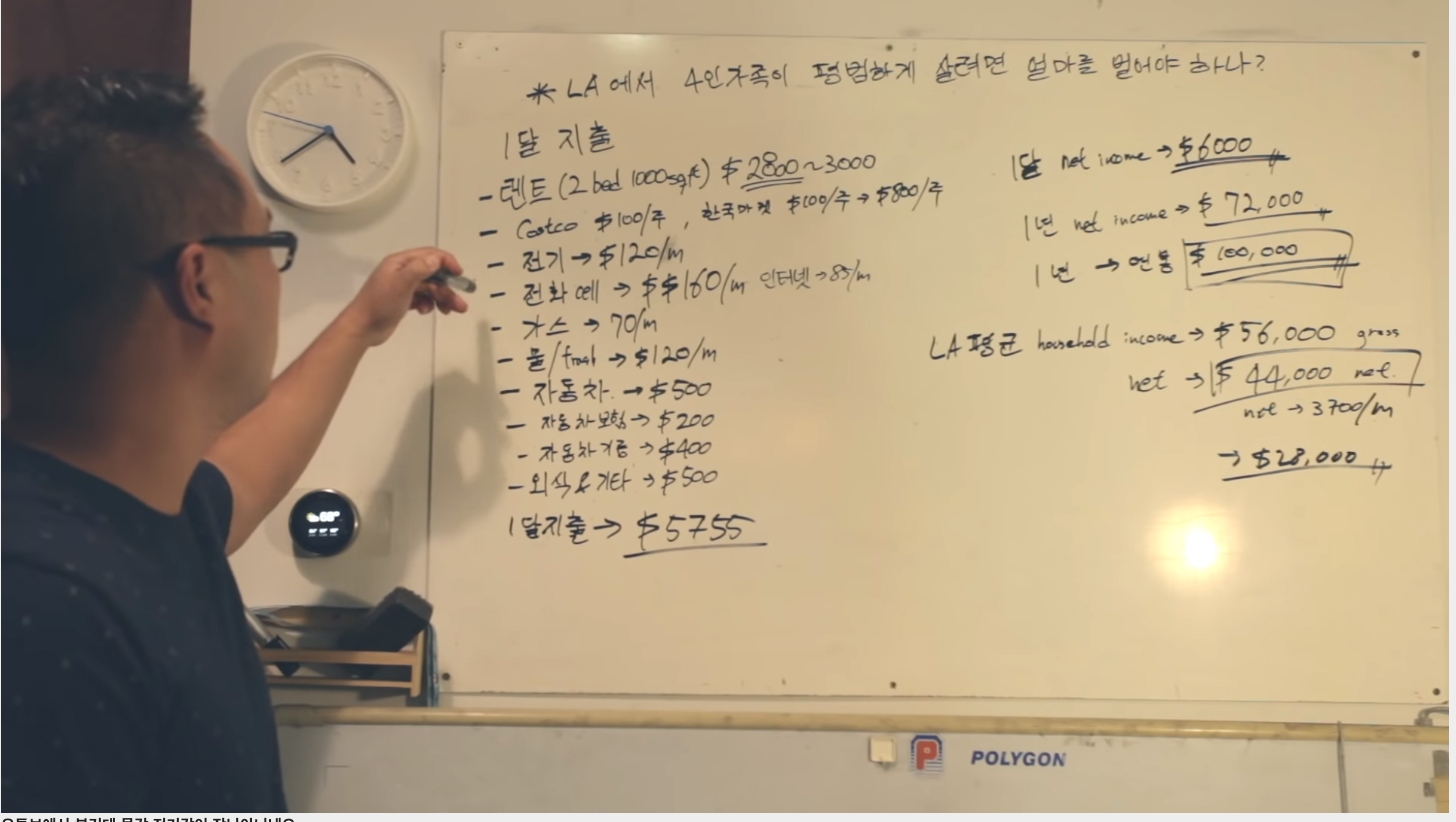 * LA 에서 4인가족이 평범하게 살려면 얼마를 벌어야 하나?
1달 지출
- 렌트 (2 bed 1000sqft) $ 2800 ~ 3000
- Costco $100/주 , 한국마켓 $100/주 → $800/주
- 전기 → $120/m
- 전화 cell → $$160/m 인터넷 → 85/m
- 가스 → 70/m
- 물/trash → $120/m
- 자동차. → $500
- 자동차보험 → $200
- 자동차기름 → $400
- 외식 & 기타 → $500
1달지출 → $5755
1달 net income → $6000
1년 net income → $ 72,000
1년 → 연봉 $ 100,000
LA 평균 household income → $56,000 gross
net → $ 44,000 net.
net → 3700/m
→ $28,000
68°
P POLYGON